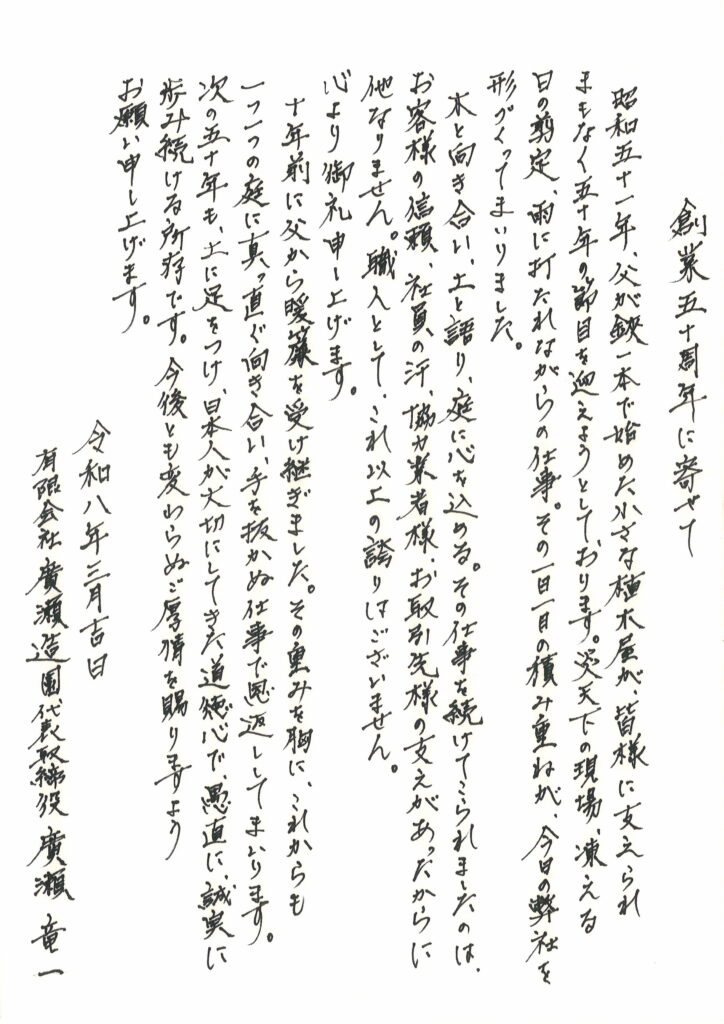 創業五十周年に寄せて
昭和五十一年、父が鋏一本で始めた小さな植木屋が、皆様に支えられ
まもなく五十年の節目を迎えようとしております。炎天下の現場、凍える
日の剪定、雨に打たれながらの仕事。その一日一日の積み重ねが、今日の弊社を
形づくってまいりました。
木と向き合い、土と語り、庭に心を込める。その仕事を続けてこられましたのは、
お客様の信頼、社員の汗、協力業者様、お取引先様の支えがあったからに
他なりません。職人として、これ以上の誇りはございません。
心より御礼申し上げます。
十年前に父から暖簾を受け継ぎました。その重みを胸に、これからも
一つ一つの庭に真っ直ぐ向き合い、手を抜かぬ仕事で恩返ししてまいります。
次の五十年も、土に足をつけ、日本人が大切にしてきた道徳心で、愚直に、誠実に
歩み続ける所存です。今後とも変わらぬご厚情を賜りますよう
お願い申し上げます。
令和八年三月吉日
有限会社廣瀬造園代表取締役 廣瀬 竜一